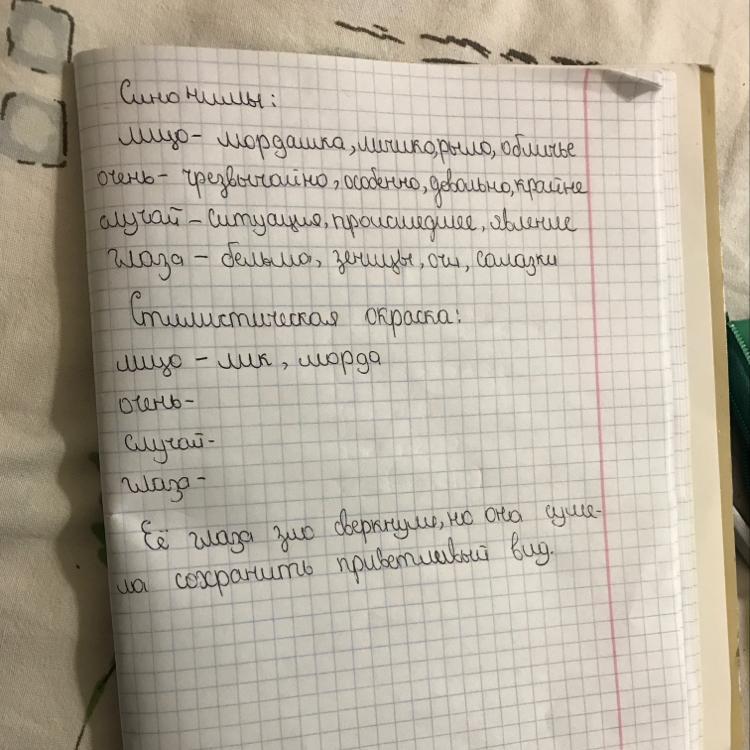 Синонимы:
лицо- мордашка, личико, рыло, обличье
очень- чрезвычайно, особенно, довольно, крайне
случай - ситуация, происшедшее, явление
глаза - бельма, зеницы, очи, салазки
Стилистическая окраска:
лицо - лик, морда
очень-
случай-
глаза-
Её глаза зло сверкнули, но она суме-
ла сохранить приветливый вид.